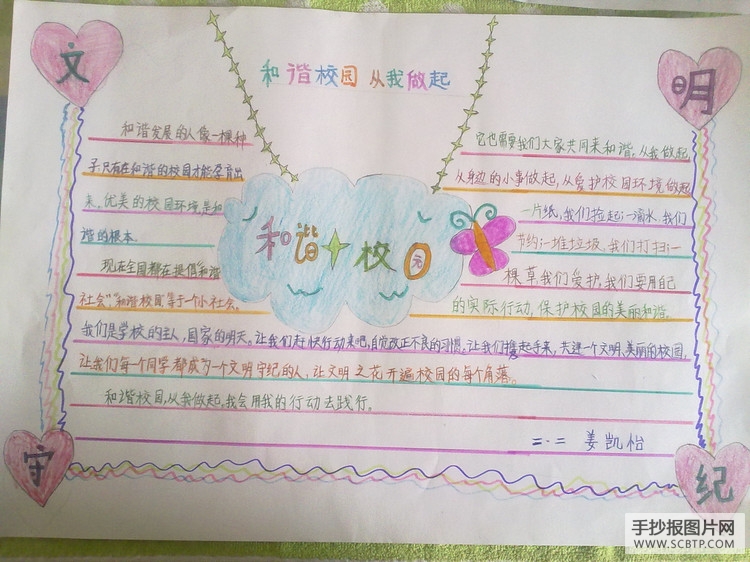 文
明
和谐校园 从我做起
和谐发展的人像一棵种
子,只有在和谐的校园才能孕育出
来。优美的校园环境,是和
谐的根本.
现在全国都在提倡"和谐
社会""和谐校园"等于一个小社会。
和谐校园
它也需要我们大家共同来和谐。从我做起,
从身边的小事做起,从爱护校园环境做起
一片纸,我们捡起;一滴水,我们
节约;一堆垃圾,我们打扫;一
棵草,我们爱护,我们要用自己
的实际行动,保护校园的美丽和谐.
我们是学校的主人,国家的明天。让我们赶快行动来吧,自觉改正不良的习惯。让我们携起手来,共建一个文明、美丽的校园,
让我们每一个同学都成为一个文明守纪的人,让文明之花开遍校园的每个角落。
和谐校园,从我做起,我会用我的行动去践行。
二·二 姜凯怡
守
纪
手抄报图片网
WWW.SCBTP.COM